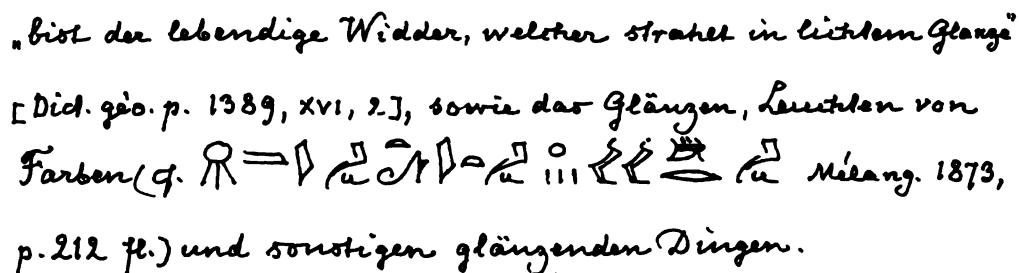 „bist der lebendige Widder, welcher strahlt in lichtem Glanze"
[Dict. géo. p. 1389, XVI, 2], sowie das Glänzen, Leuchten von
Farben (cf. Mélang. 1873,
p. 212 fl.) und sonstigen glänzenden Dingen.